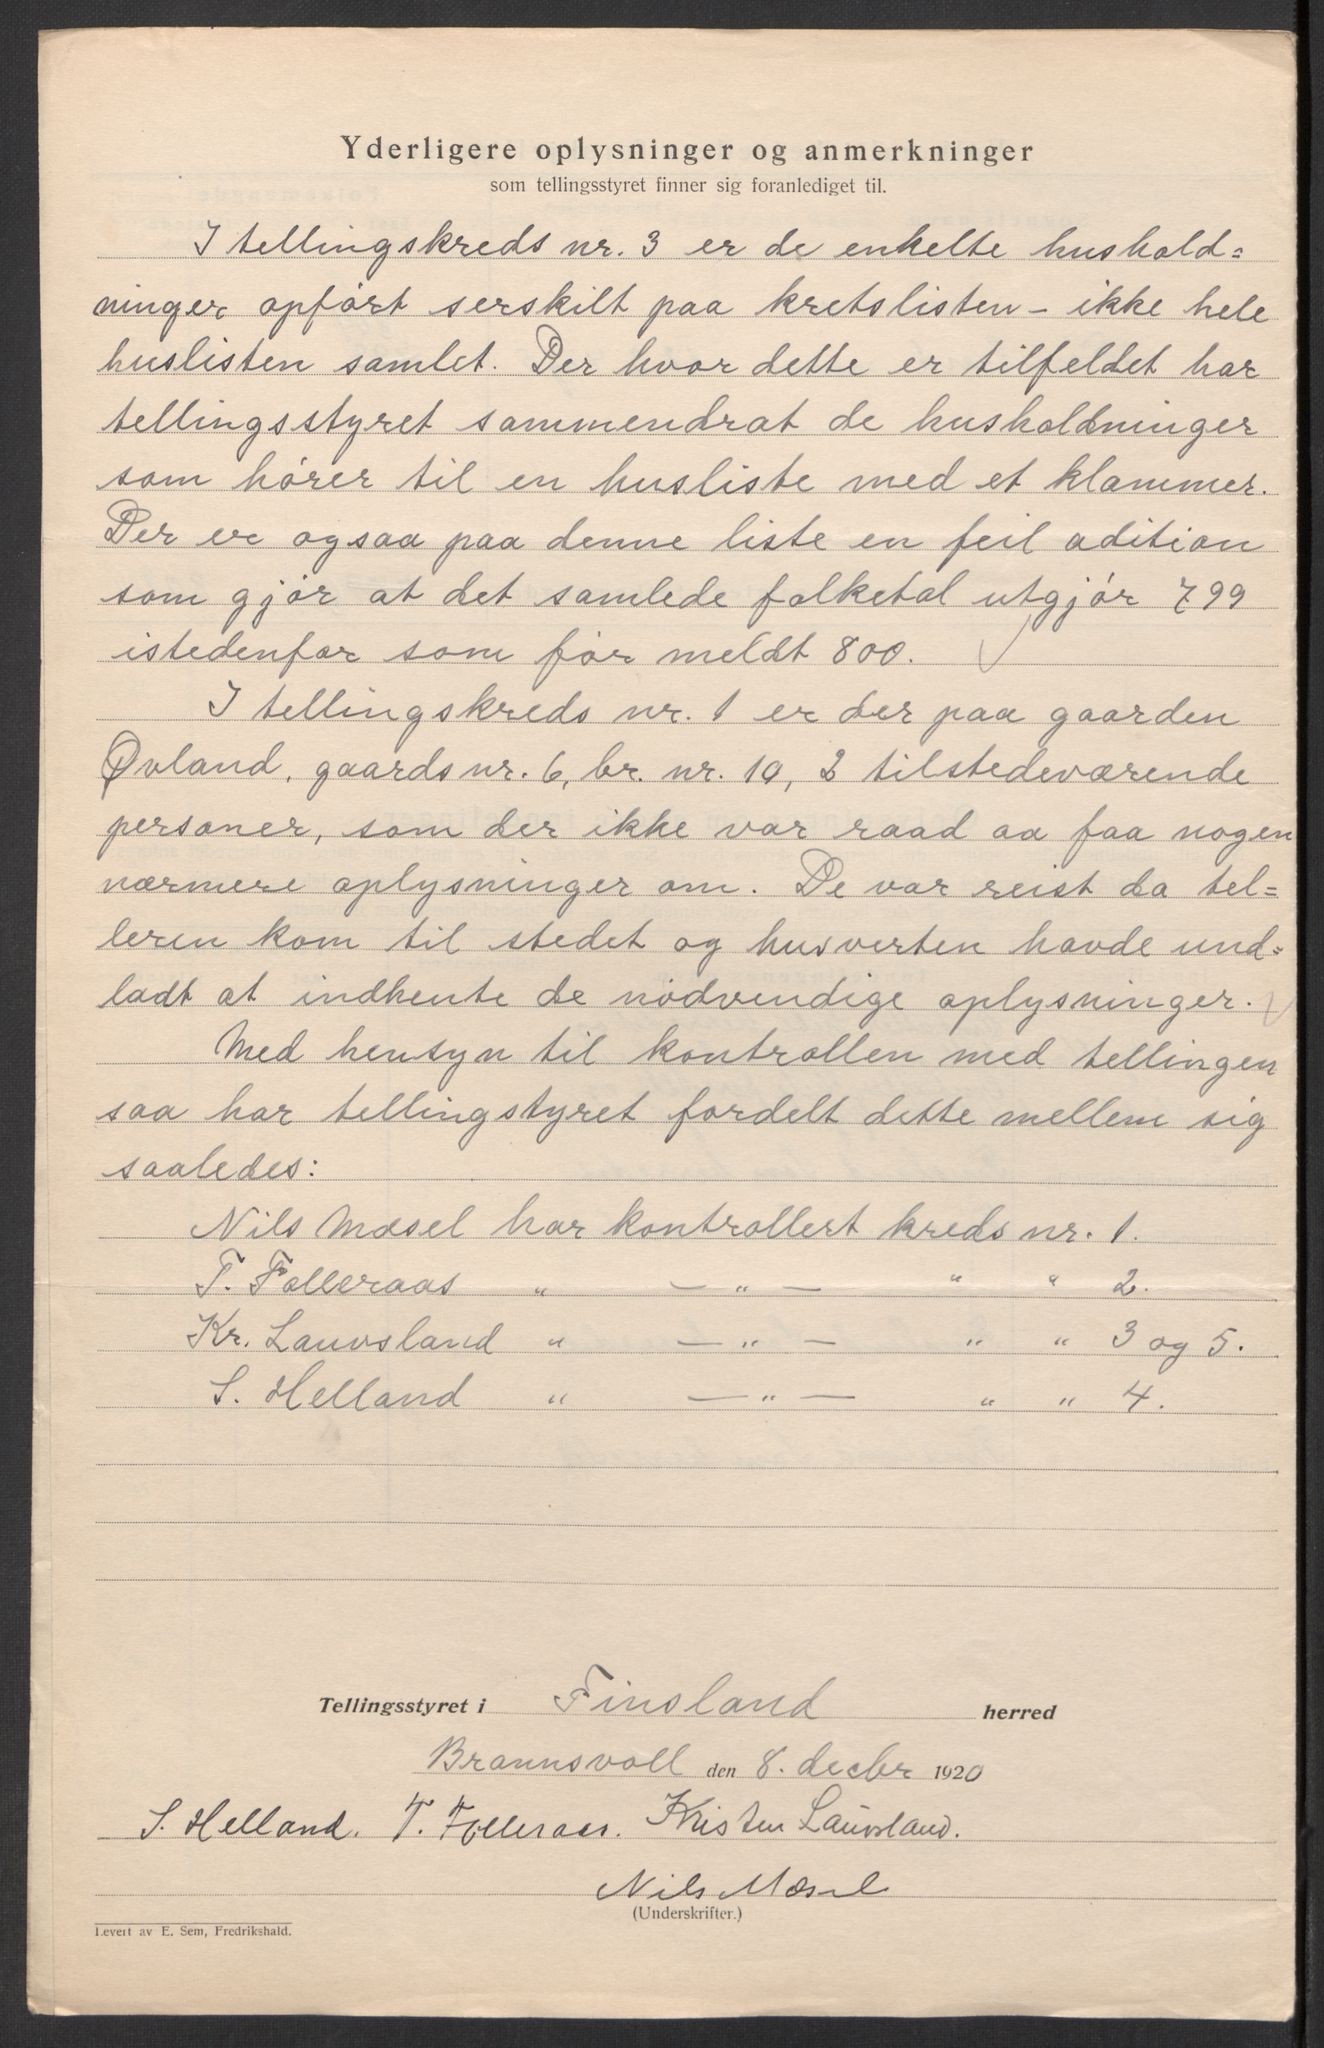 Yderligere oplysninger og anmerkninger
som tellingsstyret finner sig foranlediget til.
I tellingskreds nr. 3 er de enkelte hushold=
ninger opført serskilt paa kretslisten - ikke hele
huslisten samlet. Der hvor dette er tilfeldet har
tellingsstyret sammendrat de husholdninger
som hører til en husliste med et klammer.
Der er ogsaa paa denne liste en feil adition
som gjør at det samlede folketal utgjør 799
istedenfor som før meldt 800.
I tellingskreds nr. 1 er der paa gaarden
Øvland, gaards nr. 6, br. nr. 10, 2 tilstedeværende
personer, som der ikke var raad aa faa nogen
nærmere oplysninger om. De var reist da tel=
leren kom til stedet og husverten havde und=
ladt at indhente de nødvendige oplysninger.
Med hensyn til kontrollen med tellingen
saa har tellingstyret fordelt dette mellem sig
saaledes:
Nils Mæsel har kontrollert kreds nr. 1.
T. Folleraas " — " — " " 2.
Kr. Lauvsland " — " — " " 3 og 5.
S. Helland " — " — " " 4.
Tellingsstyret i Finsland herred
Brannsvoll den 8. decbr 1920
S. Helland. T. Folleraas. Kristen Lauvsland.
Nils Mæsel
(Underskrifter.)
Levert av E. Sem, Fredrikshald.